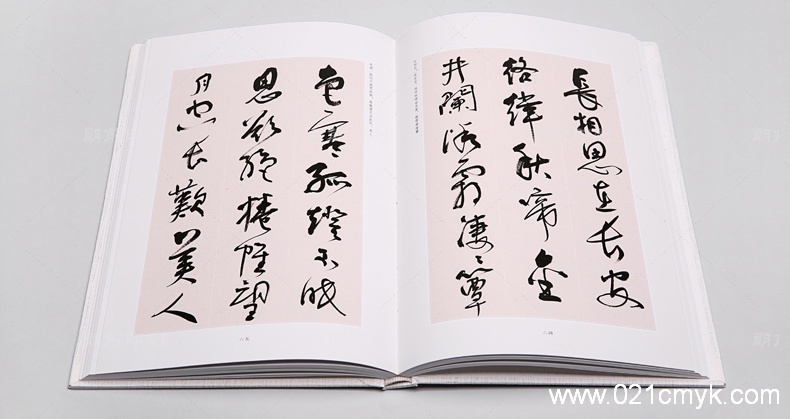 長相思在長安
絡緯秋啼金
井闌微霜淒〻簟
色寒孤燈不眠
思欲絕捲帷望
月空長歎美人
六四
六五
www.021cmyk.com